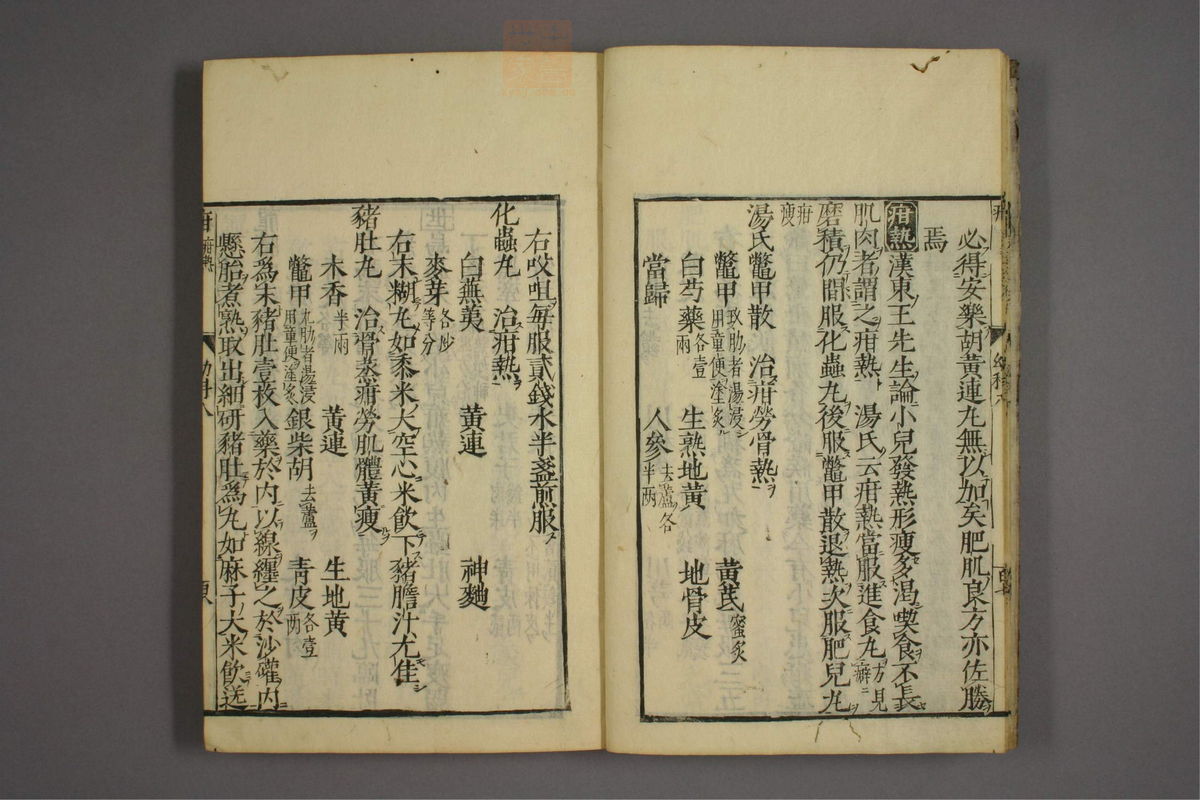 必得安樂胡黃連丸無以加矣肥肌良方亦佐勝
焉
疳熱漢東王先生論小兒發熱形瘦多渴喫食不長
肌肉者謂之疳熱湯氏云疳熱當服進食丸方見癖
磨積仍間服化蟲丸後服鱉甲散退熱次服肥兒丸
疳瘦
湯氏鱉甲散 治疳勞骨熱
鱉甲 九肋者湯浸用童便塗炙 黃芪 蜜炙
白芍藥 各壹兩 生熟地黃 地骨皮
當歸 人參 去蘆各半兩
右㕮咀每服貳錢水半盞煎服
化蟲丸 治疳熱
白蕪荑 黃連 神麯
麥芽 各炒等分
右末糊丸如黍米大空心米飲下豬膽汁尤佳
豬肚丸 治骨蒸疳勞肌體黃瘦
木香 半兩 黃連 生地黃
鱉甲 九肋者湯浸用童便塗炙 銀柴胡 去蘆 青皮 各壹兩
右為末豬肚壹枚入藥於內以線纏之於沙罐內
懸胎煮熟取出細研豬肚為丸如麻子大米飲送
疳 疳熱 幼科八